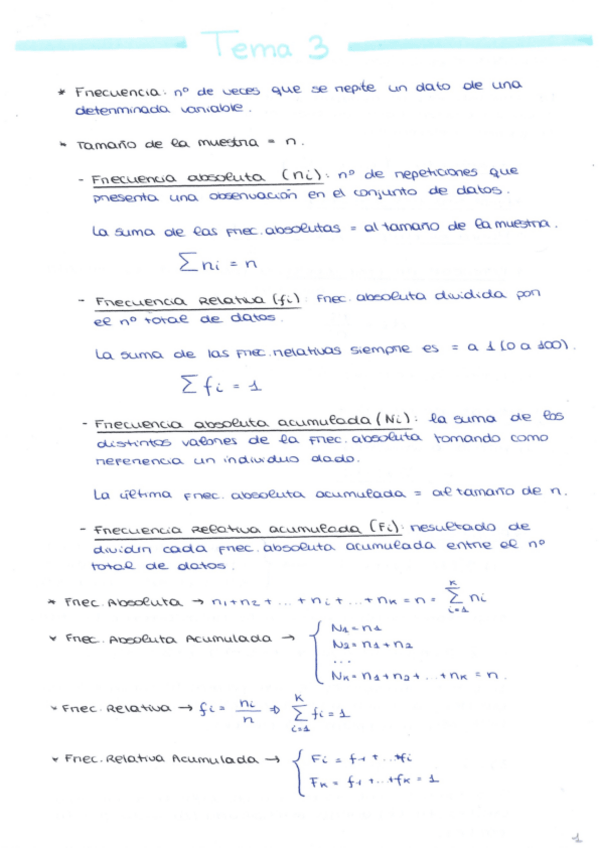 Tema 3
* Frecuencia: nº de veces que se repite un dato de una
determinada variable.
* Tamaño de la muestra = n.
- Frecuencia absoluta (ni): nº de repeticiones que
presenta una observación en el conjunto de datos.
La suma de las frec. absolutas = al tamaño de la muestra.
∑ ni = n
- Frecuencia Relativa (fi): Frec. absoluta dividida por
el nº total de datos.
La suma de las frec. relativas siempre es = a 1 (0 a 100).
∑ fi = 1
- Frecuencia absoluta acumulada (Ni): la suma de los
distintos valores de la frec. absoluta tomando como
referencia un individuo dado.
La última frec. absoluta acumulada = al tamaño de n.
- Frecuencia Relativa acumulada (Fi): resultado de
dividir cada frec. absoluta acumulada entre el nº
total de datos.
* Frec. Absoluta → n1+n2+...+ni+...+nK = n = ∑(i=1, K) ni
* Frec. Absoluta Acumulada → { N1 = n1
N2 = n1 + n2
...
NK = n1+n2+...+nK = n.
* Frec. Relativa → fi = ni/n ⇒ ∑(i=1, K) fi = 1
* Frec. Relativa Acumulada → { Fi = f1 + ... +fi
FK = f1 +...+fK = 1
1